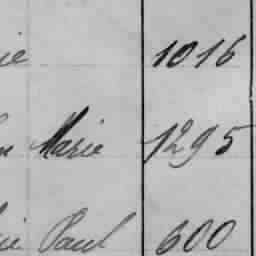 ie 1016
Marie 1295
ie Paul 600